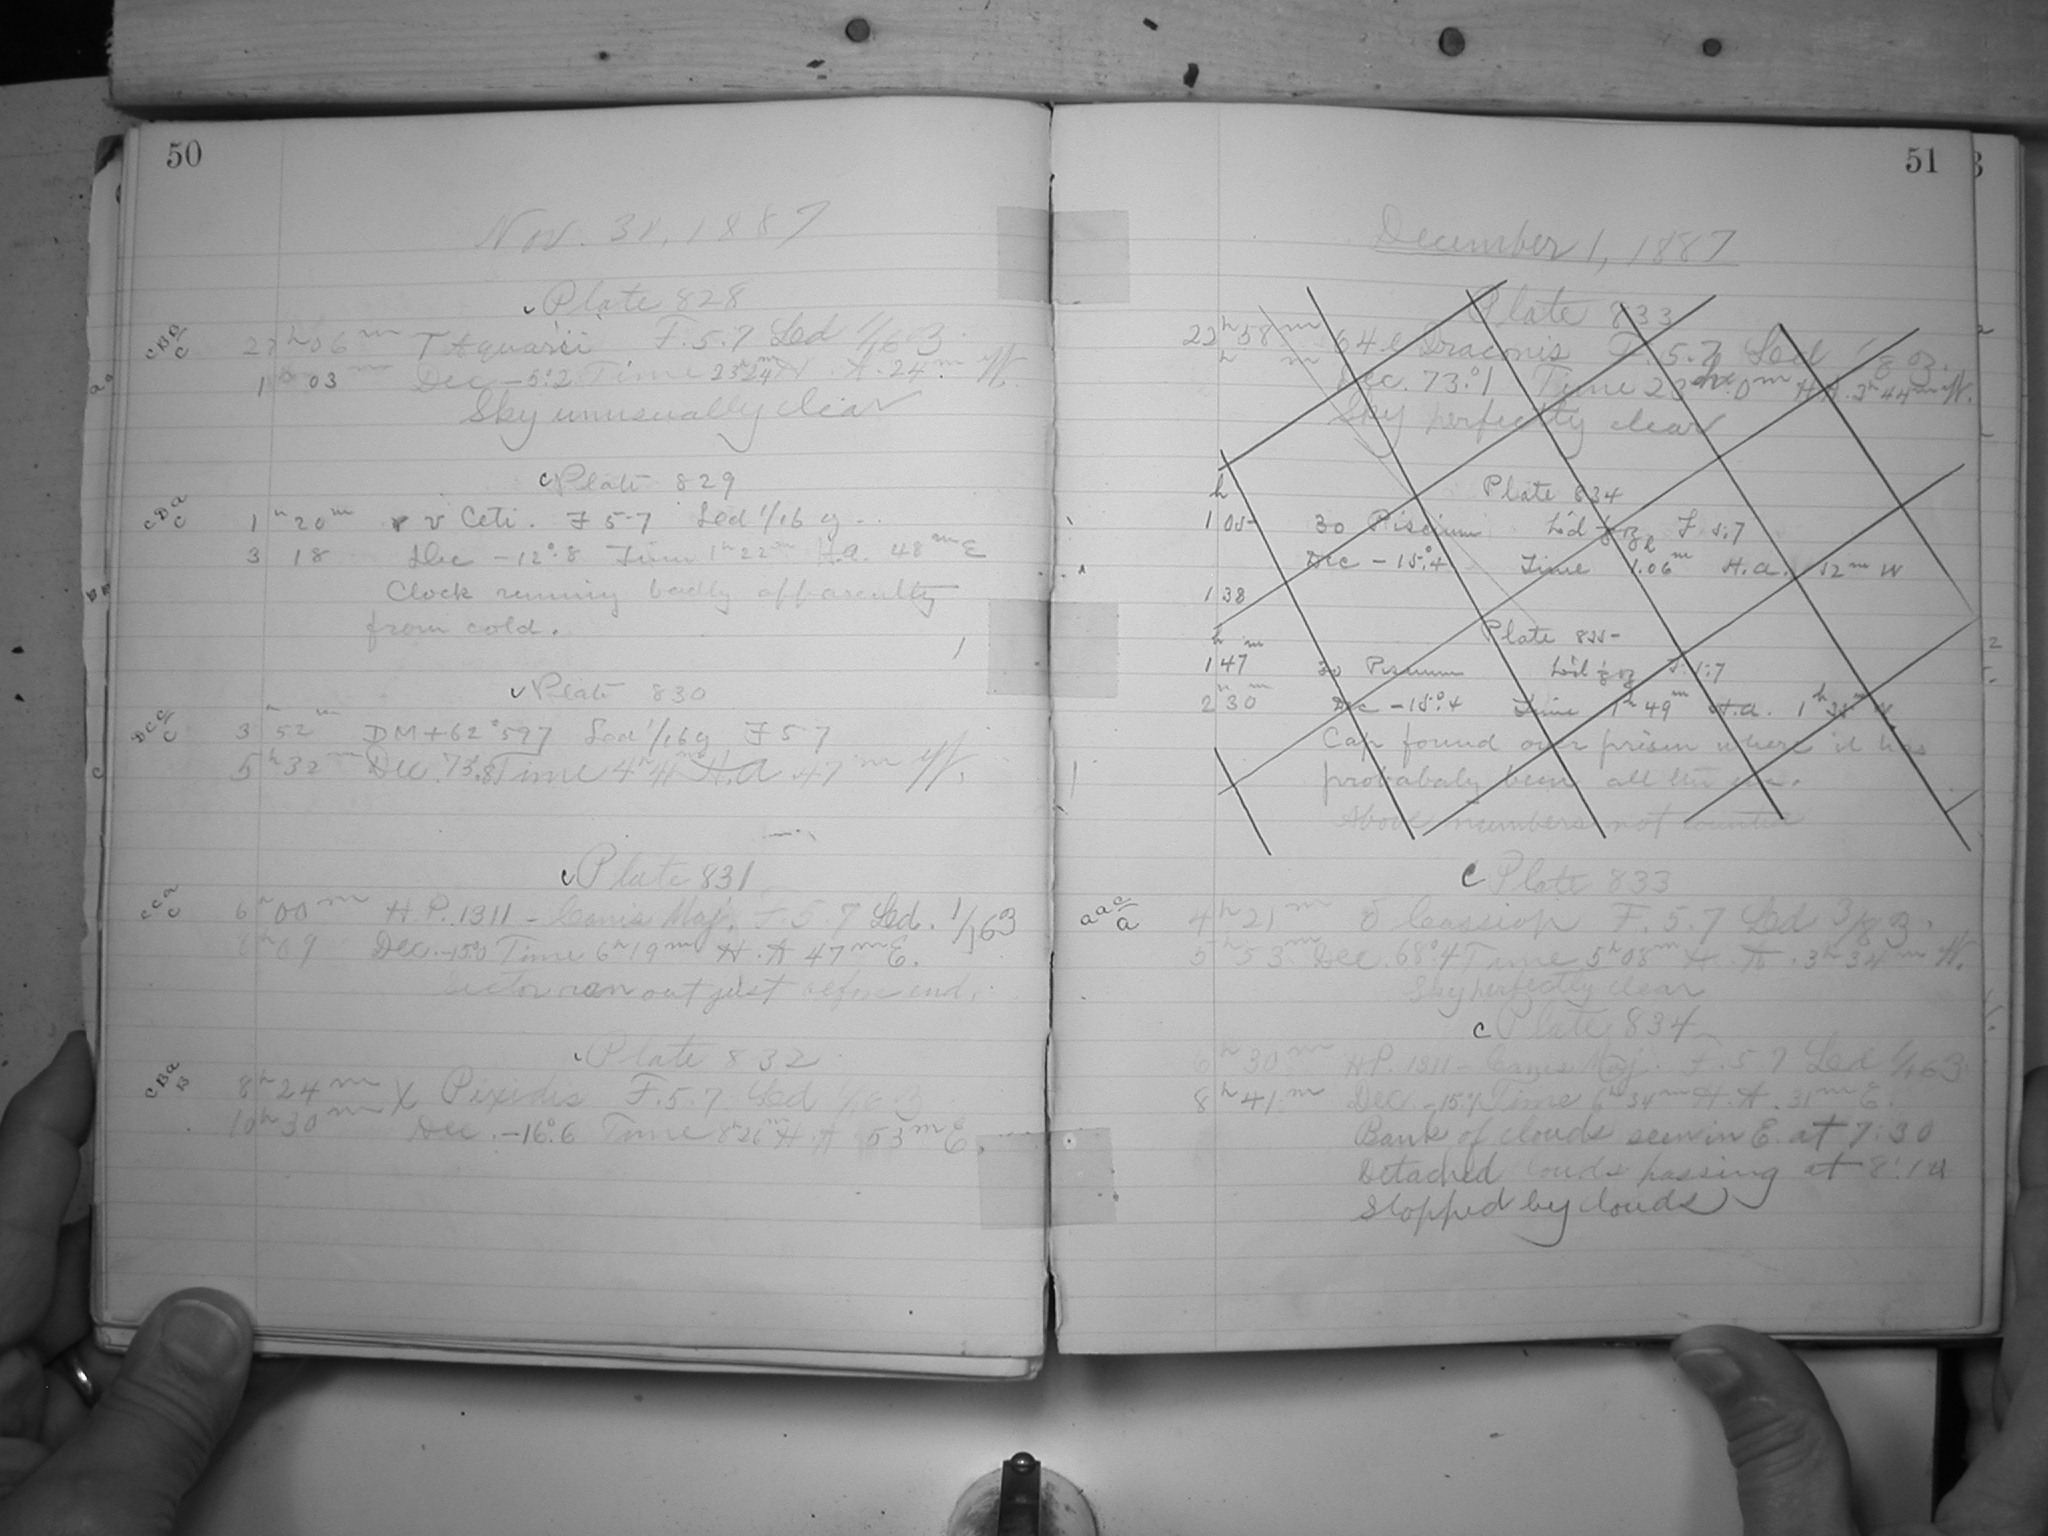 50
Nov. 31, 1887
Plate 828
22 h 06 m T Aquarii F. 5.7 Led 1/16 3
1 03 Dec -5°.2 Time 23h24m H. A. 24m W.
Sky unusually clear
Plate 829
1 h 20 m v Ceti. F 5.7 Led 1/16 g
3 18 Dec -12°.8 Time 1h 22m H.a. 48m E
Clock running badly apparently
from cold.
Plate 830
3 h 52 m DM+62° 597 Led 1/16 g F 5 7
5 h 32 m Dec. 73°.8 Time 4h 41m H.A 47m W.
Plate 831
6 h 00 m H.P. 1311 - Canis Maj. F. 5.7 Led. 1/16 3
6 h 09 Dec. -15°.0 Time 6h 19m H. A 47m E.
Sector ran out just before end.
Plate 832
8 h 24 m X Pixidis F. 5.7 Led 1/16 3
10 h 30 m Dec. -16°.6 Time 8h26m H. A 53m E.
51
December 1, 1887
Plate 833
22 h 58 m 64 e Draconis F. 5.7 Led 1/8 03.
h m Dec. 73°.1 Time 23 h. 0m H. A. 3h 44m W.
Sky perfectly clear
Plate 834
h
1 05 30 Piscium L'd 1/8 oz F 5.7
Dec -15°.4 Time 1h.06m H.a. 12m W
1 38
Plate 835
h m
1 47 30 Piscium L'd 1/8 oz F. 5.7
2 h 30 m Dec -15°.4 Time 1h 49m H.a. 1h 35m W.
Cap found over prism where it has
probabaly been all the
Above numbers not counted
Plate 833
4 h 21 m δ Cassiop F. 5.7 Led 3/8 3.
5 h 53 m Dec. 68°.4 Time 5h08m H. A. 3h 34m W.
Sky perfectly clear
Plate 834
6 h 30 m H.P. 1311 - Canis Maj. F. 5 7 Led 1/16 3
8 h 41 m Dec. -15°.1 Time 6h 34m H. A. 31m E.
Bank of clouds seen in E. at 7:30
Detached clouds passing at 8:10
Stopped by clouds